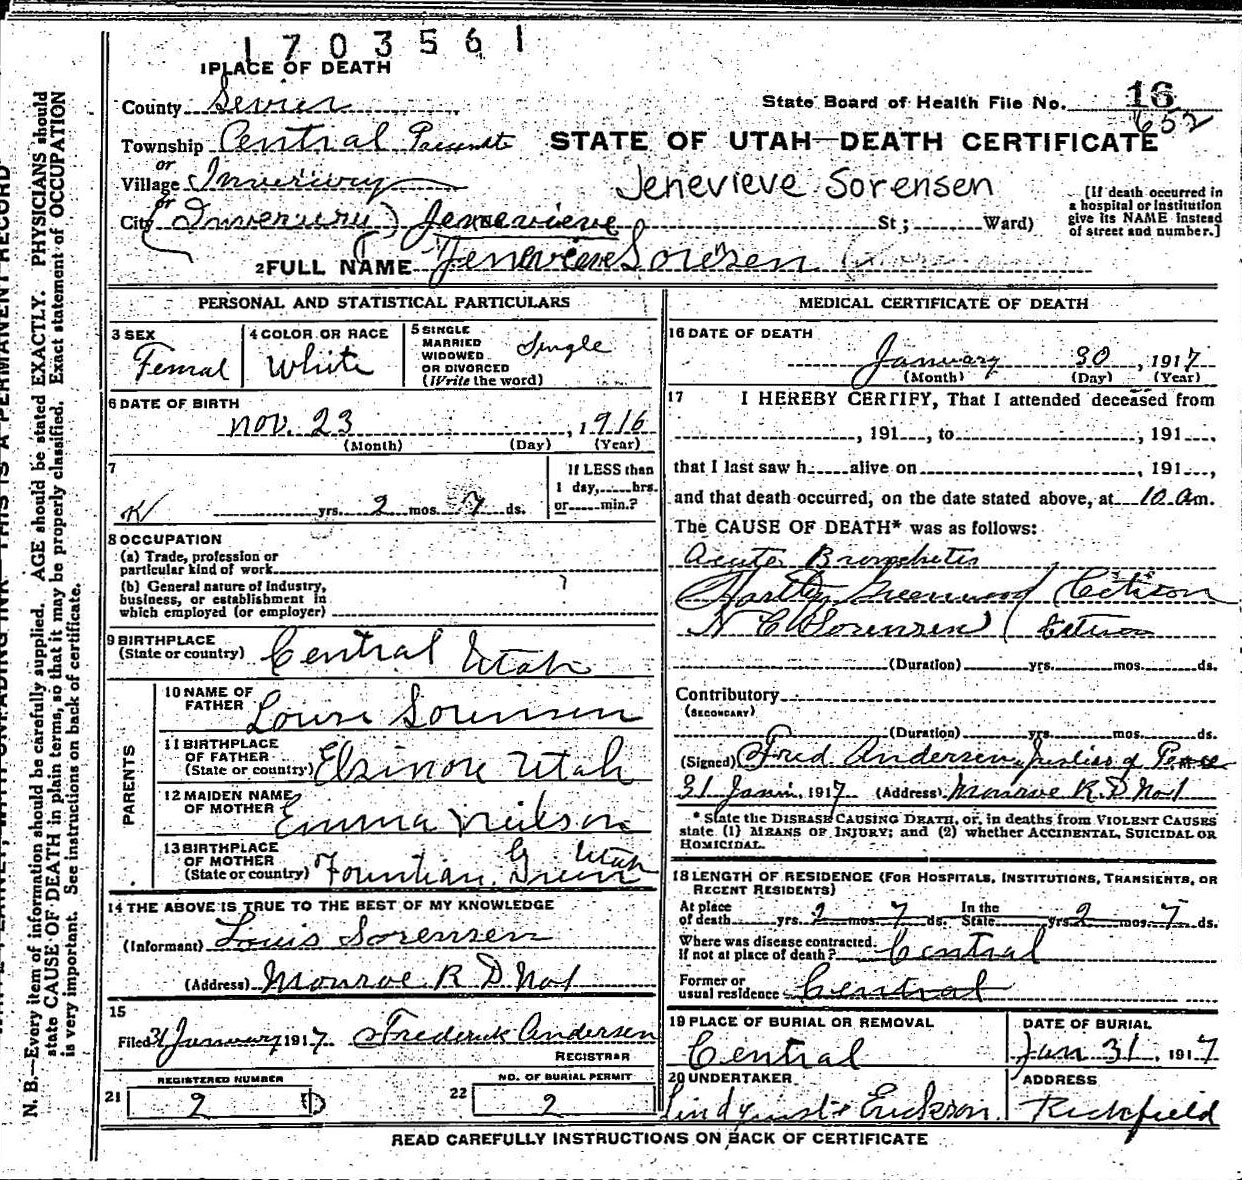 1703561
1 PLACE OF DEATH
County Sevier
State Board of Health File No. 16
652
Township Central Precinct
STATE OF UTAH—DEATH CERTIFICATE
or
Village Inverury
Jenevieve Sorensen
or
City (Inverury) Jenevieve St; Ward)
[If death occurred in
a hospital or institution
give its NAME instead
of street and number.]
2 FULL NAME Jenevieve Sorensen
PERSONAL AND STATISTICAL PARTICULARS
3 SEX
Femal
4 COLOR OR RACE
White
5 SINGLE
MARRIED
WIDOWED
OR DIVORCED
(Write the word)
Single
6 DATE OF BIRTH
Nov. 23, 1916
(Month) (Day) (Year)
7
yrs. 2 mos. 7 ds.
If LESS than
1 day, hrs.
or min.?
8 OCCUPATION
(a) Trade, profession or
particular kind of work
(b) General nature of industry,
business, or establishment in
which employed (or employer)
9 BIRTHPLACE
(State or country) Central Utah
PARENTS
10 NAME OF
FATHER Louis Sorensen
11 BIRTHPLACE
OF FATHER
(State or country) Elsinore Utah
12 MAIDEN NAME
OF MOTHER Emma Neilson
13 BIRTHPLACE
OF MOTHER
(State or country) Fountian Green Utah
14 THE ABOVE IS TRUE TO THE BEST OF MY KNOWLEDGE
(Informant) Louis Sorensen
(Address) Monroe R D No 1
15
Filed 31 January 1917 Frederick Andersen
REGISTRAR
REGISTERED NUMBER
21 2
NO. OF BURIAL PERMIT
22 2
MEDICAL CERTIFICATE OF DEATH
16 DATE OF DEATH
January 30, 1917
(Month) (Day) (Year)
17 I HEREBY CERTIFY, That I attended deceased from
, 191 , to , 191 ,
that I last saw h alive on , 191 ,
and that death occurred, on the date stated above, at 10 a m.
The CAUSE OF DEATH* was as follows:
Acute Bronchetis
Greenwood
Sorensen
(Duration) yrs. mos. ds.
Contributory
(SECONDARY)
(Duration) yrs. mos. ds.
(Signed) Fred Andersen Justice of Peace
31 Janu, 1917 (Address) Monroe R. D No 1
* State the DISEASE CAUSING DEATH, or, in deaths from VIOLENT CAUSES
state (1) MEANS OF INJURY; and (2) whether ACCIDENTAL, SUICIDAL OR
HOMICIDAL.
18 LENGTH OF RESIDENCE (FOR HOSPITALS, INSTITUTIONS, TRANSIENTS, OR
RECENT RESIDENTS)
At place
of death yrs. 2 mos. 7 ds. In the
State yrs. 2 mos. 7 ds.
Where was disease contracted
if not at place of death? Central
Former or
usual residence Central
19 PLACE OF BURIAL OR REMOVAL
Central
DATE OF BURIAL
Jan 31, 1917
20 UNDERTAKER
Lindquist & Erickson
ADDRESS
Richfield
READ CAREFULLY INSTRUCTIONS ON BACK OF CERTIFICATE
N. B.—Every item of information should be carefully supplied. AGE should be stated EXACTLY. PHYSICIANS should
state CAUSE OF DEATH in plain terms, so that it may be properly classified. Exact statement of OCCUPATION
is very important. See instructions on back of certificate.